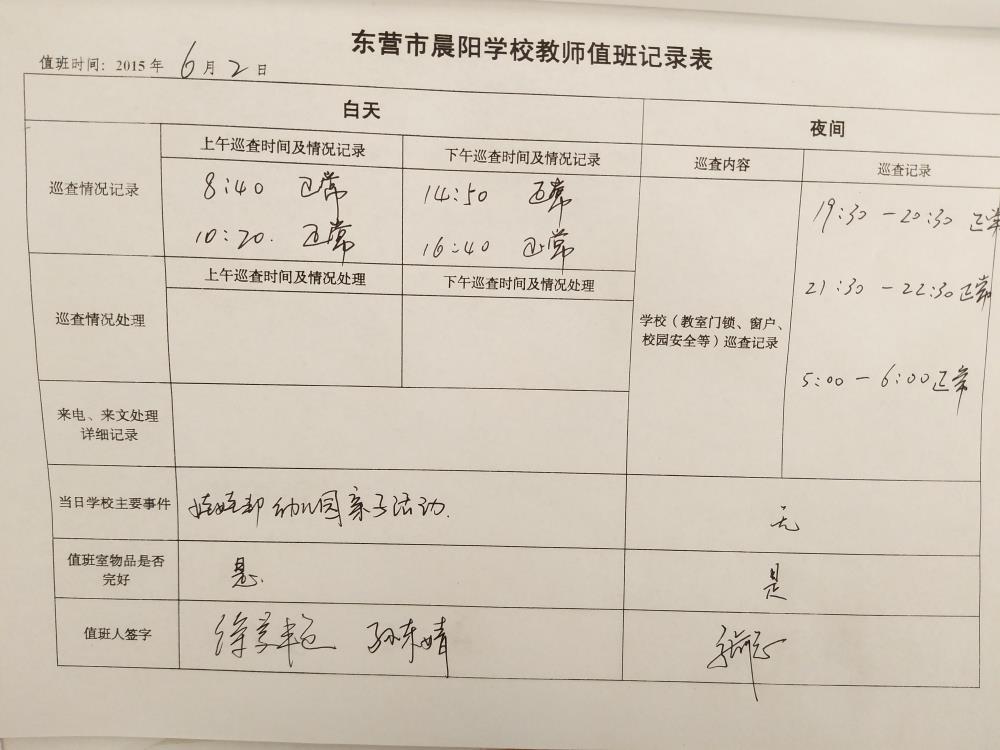 东营市晨阳学校教师值班记录表
值班时间：2015年 6月2日
白天
夜间
上午巡查时间及情况记录
下午巡查时间及情况记录
巡查内容
巡查记录
巡查情况记录
8:40 正常
14:50 正常
10:20. 正常
16:40 正常
19:30 — 20:30 正常
上午巡查时间及情况处理
下午巡查时间及情况处理
21:30 — 22:30 正常
巡查情况处理
学校（教室门锁、窗户、
校园安全等）巡查记录
5:00 — 6:00 正常
来电、来文处理
详细记录
当日学校主要事件
幼儿园亲子活动.
无
值班室物品是否
完好
是.
是
值班人签字
孙东婧